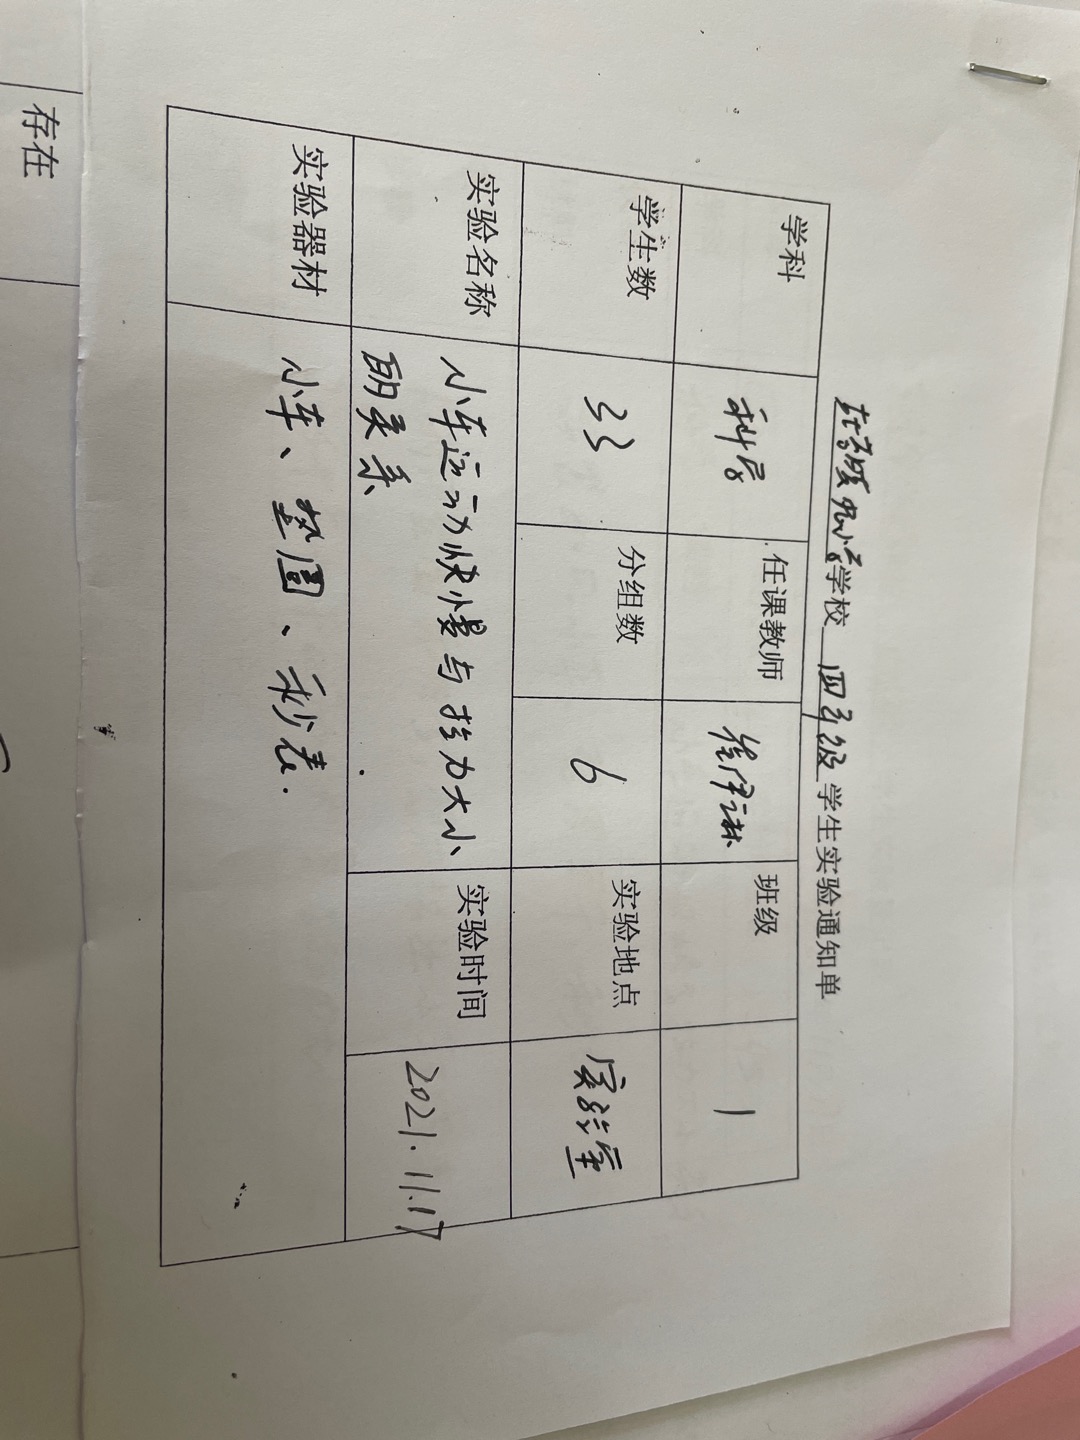 学校 四年级 学生实验通知单
学科 科学 任课教师 班级 1
学生数 33 分组数 6 实验地点 实验室
实验名称 小车运动快慢与拉力大小 实验时间 2021.11.17
的关系
实验器材 小车、垫圈、秒表.
存在